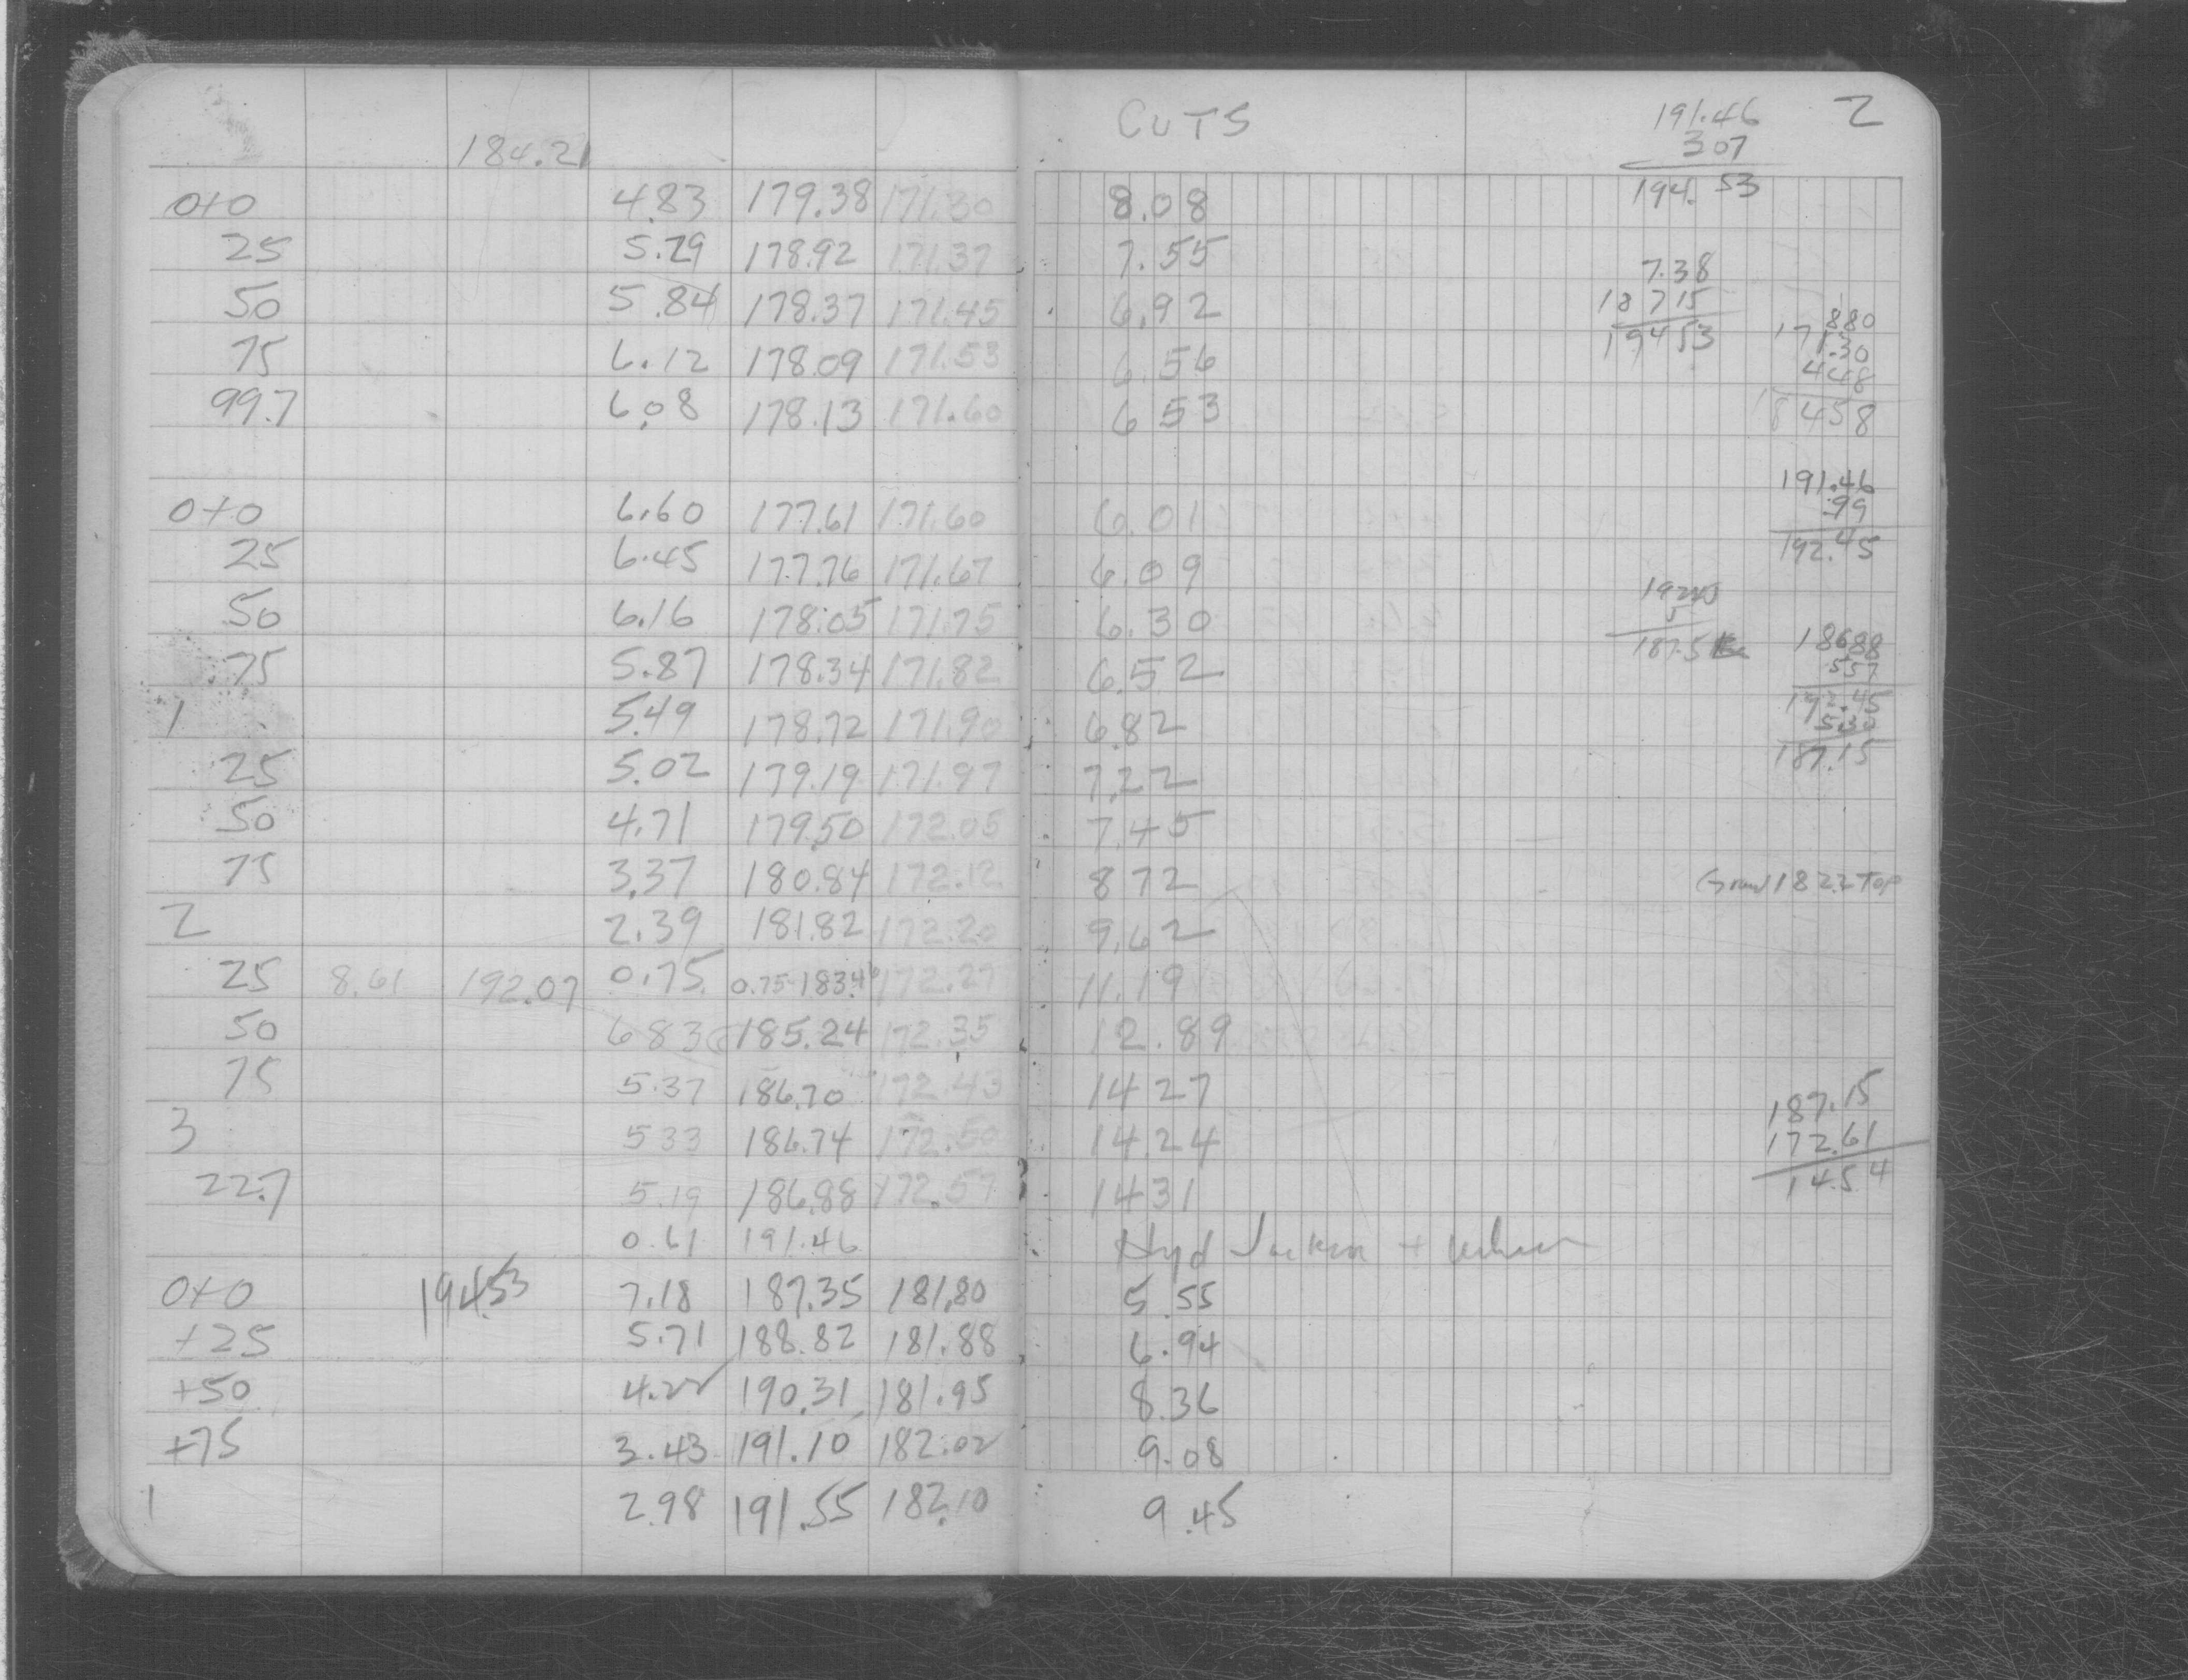 CUTS 191.46 2
184.21 307
194.53
0+0 4.83 179.38 171.30 8.08
25 5.29 178.92 171.37 7.55 7.38
50 5.84 178.37 171.45 6.92 18715 880
75 6.12 178.09 171.53 6.56 19453 171.30
448
99.7 6.08 178.13 171.60 6 53 18458
191.46
0+0 6.60 177.61 171.60 6.01 .99
25 6.45 177.76 171.67 6.09 192.45
50 6.16 178.05 171.75 6.30 5
187.5 18688
75 5.87 178.34 171.82 6.52 557
1 5.49 178.72 171.90 6.82 192.45
5.30
25 5.02 179.19 171.97 7.22 187.15
50 4.71 179.50 172.05 7.45
75 3.37 180.84 172.12 8 72 182.2 Top
2 2.39 181.82 172.20 9.62
25 8.61 192.07 0.75 0.75-183.46 172.27 11.19
50 6 83 185.24 172.35 12.89
75 5.37 186.70 172.43 14 27 187.15
3 5 33 186.74 172.50 14.24 172.61
22.7 5.19 186.88 172.57 14 31 14.54
0.61 191.46 Hyd Jackson +
0+0 194.53 7.18 187.35 181.80 5.55
+25 5.71 188.82 181.88 6.94
+50 4.22 190.31 181.95 8.36
+75 3.43 191.10 182.02 9.08
1 2.98 191.55 182.10 9.45